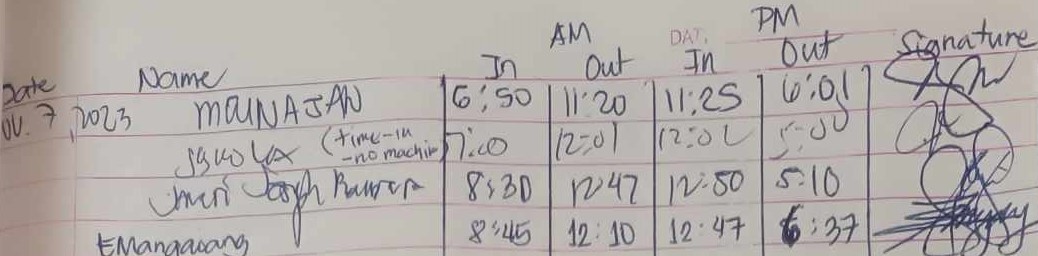 AM DAT. PM
Date Name In Out In Out Signature
OV. 7, 2023 MOUNAJAN 6:50 11:20 11:25 6:01
(time-in -no machin) 7:00 12:01 12:02 5:00
Joseph 8:30 12:47 12:50 5:10
EMangawang 8:45 12:10 12:47 6:37